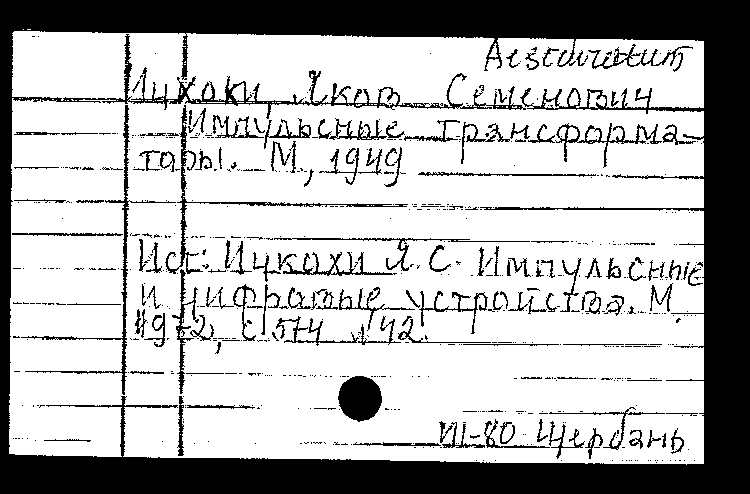 Ицхоки, Яков Семенович
Импульсные трансформа-
торы. М, 1949
Ист: Ицкохи Я.С. Импульсные
и цифровые устройства. М.
1972, с 574 №42.
VII-80 Щербань